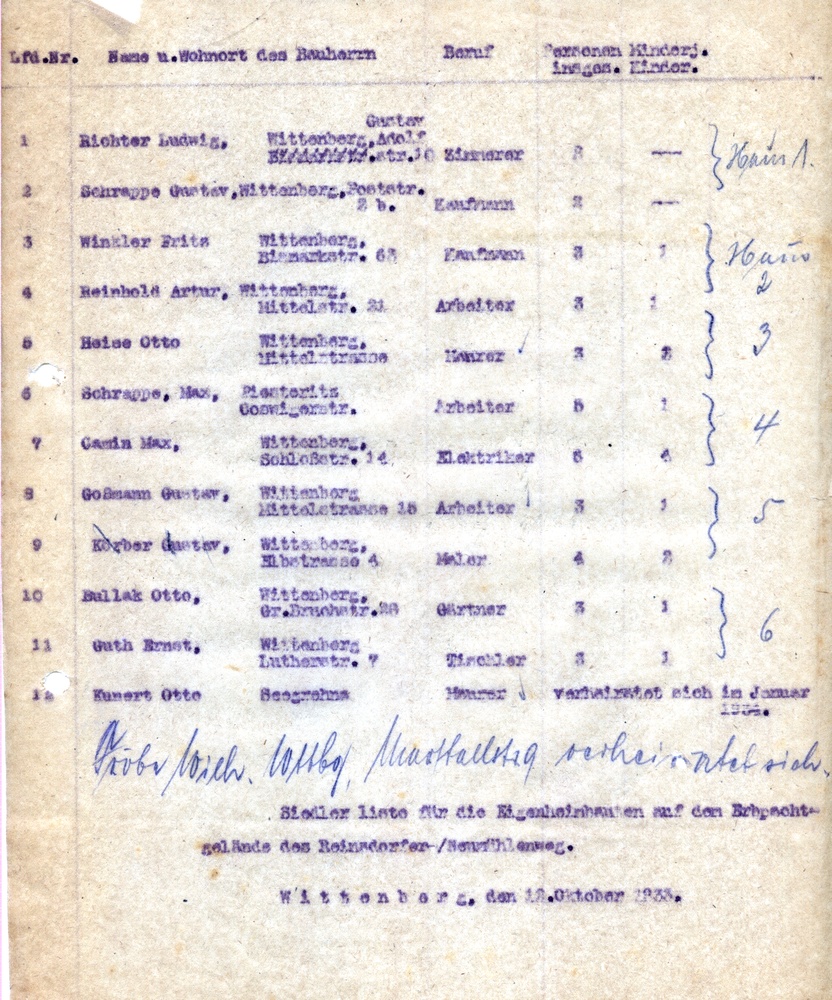 Lfd.Nr. Name u.Wohnort des Bauherrn Beruf Personen Minderj.
insges. Kinder.
Gustav
1 Richter Ludwig, Wittenberg,Adolf
str.10 Zimmerer 2 — Haus 1.
2 Schrappe Gustav,Wittenberg,Poststr.
2 b. Kaufmann 2 —
3 Winkler Fritz Wittenberg,
Bismarkstr. 62 Kaufmann 3 1 Haus
2
4 Reinhold Artur, Wittenberg,
Mittelstr. 21 Arbeiter 3 1
5 Heise Otto Wittenberg, 3
Mittelstrasse Maurer 3 2
6 Schrappe, Max, Piesteritz
Coswigerstr. Arbeiter 5 1
4
7 Camin Max, Wittenberg,
Schloßstr. 14 Elektriker 6 4
8 Goßmann Gustav, Wittenberg
Mittelstrasse 15 Arbeiter 3 1 5
9 Körber Gustav, Wittenberg,
Elbstrasse 4 Maler 4 2
10 Bullak Otto, Wittenberg,
Gr.Bruchstr.26 Gärtner 3 1
6
11 Guth Ernst, Wittenberg
Lutherstr. 7 Tischler 3 1
12 Kunert Otto Seegrehna Maurer verheiratet sich im Januar
1934.
Gröbe Wilh. Wttbg, verheiratet sich.
Siedler liste für die Eigenheimbauten auf dem Erbpacht-
gelände des Reinsdorfer-/Neumühlenweg.
Wittenberg, den 12.Oktober 1933.